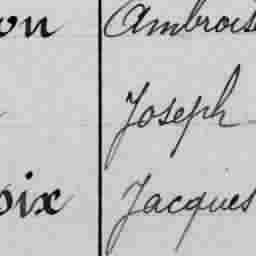 on Ambrois
Joseph
oix Jacques